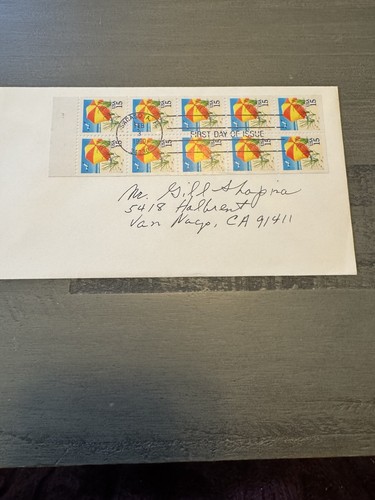 15 USA 15 USA 15 USA 15 USA 15 USA
FIRST DAY OF ISSUE
15 USA 15 USA 15 USA 15 USA 15 USA
Mr. Gill Shapiro
5418 Halbrent
Van Nuys, CA 91411